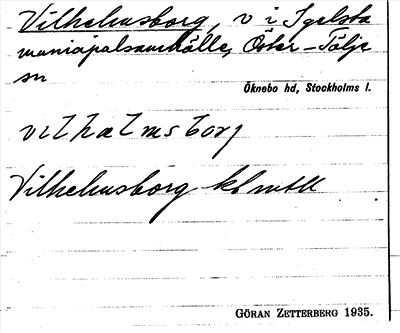 Vilhelmsborg, v i Igelsta
municipalsamhälle, Öster-Tälje
sn
Öknebo hd, Stockholms l.
vilhælmsborj
Vilhelmsborg
GÖRAN ZETTERBERG 1935.